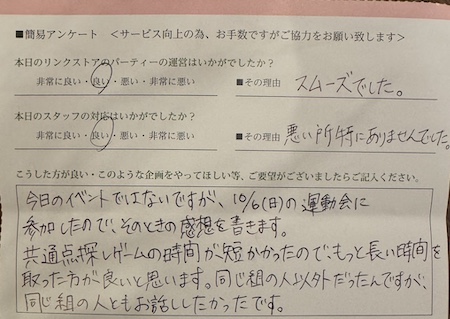 ■簡易アンケート ＜サービス向上の為、お手数ですがご協力をお願い致します＞
本日のリンクストアのパーティーの運営はいかがでしたか？
非常に良い・良い・悪い・非常に悪い ■その理由 スムーズでした。
本日のスタッフの対応はいかがでしたか？
非常に良い・良い・悪い・非常に悪い ■その理由 悪い所特にありませんでした。
こうした方が良い・このような企画をやってほしい等、ご要望がございましたらご記入ください。
今日のイベントではないですが、10/6(日)の運動会に
参加したので、そのときの感想を書きます。
共通点探しゲームの時間が短かかったので、もっと長い時間を
取った方が良いと思います。同じ組の人以外だったんですが、
同じ組の人ともお話ししたかったです。